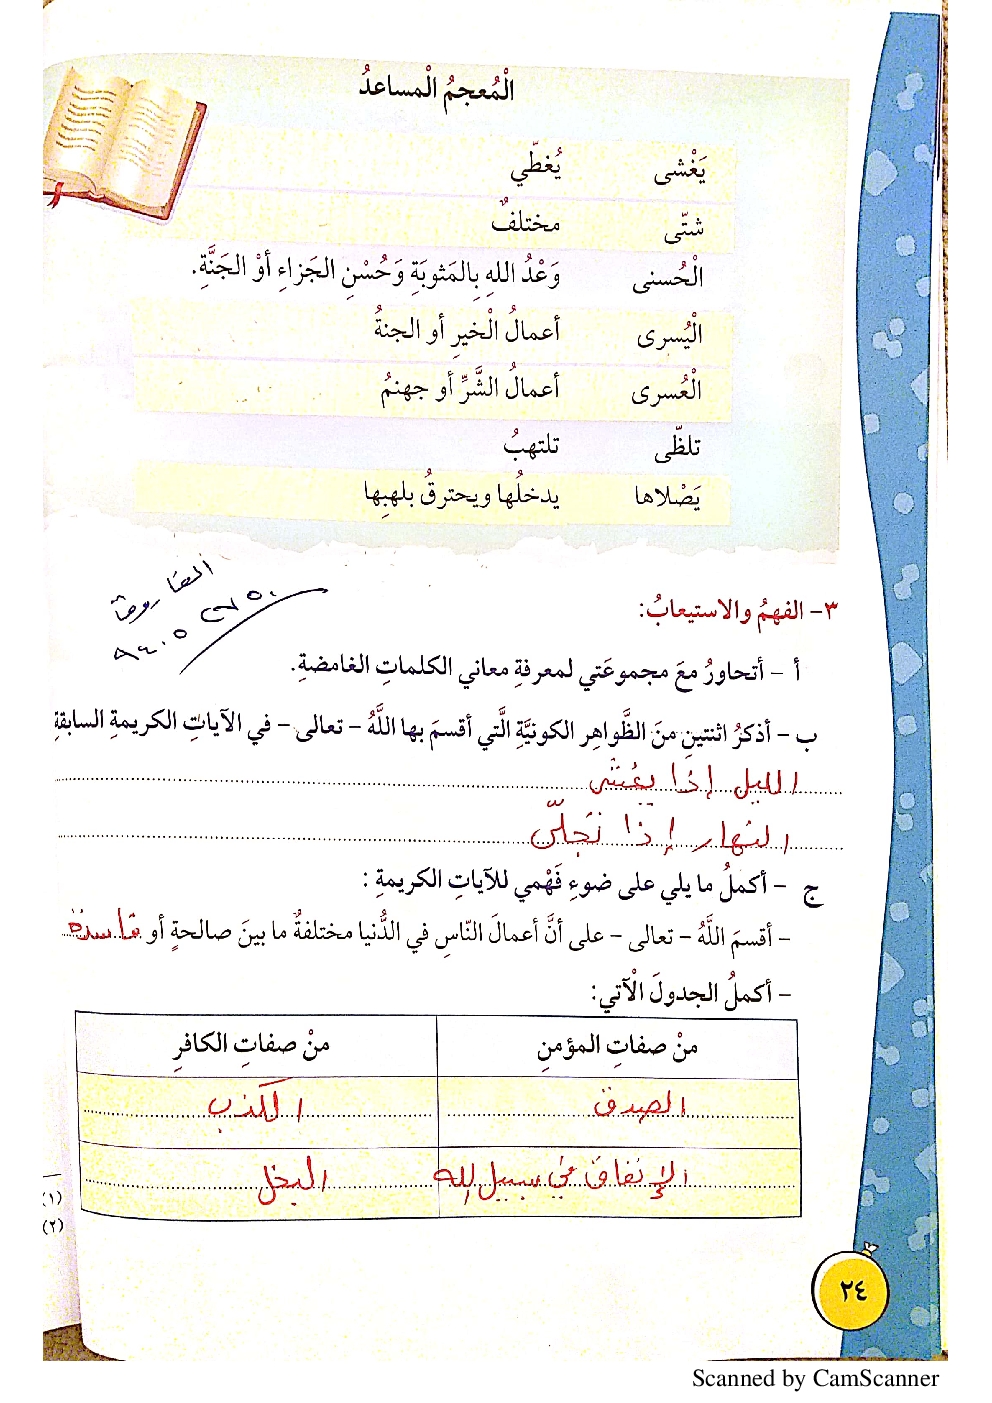 الْمُعجمُ الْمساعدُ
يَغْشى يُغطّي
شتّى مختلفٌ
الْحُسنى وَعْدُ اللهِ بِالمَثوبَةِ وَحُسْنِ الجَزاءِ أوْ الجَنَّةِ.
الْيُسرى أعمالُ الْخيرِ أو الجنةُ
الْعُسرى أعمالُ الشَّرِّ أو جهنمُ
تلظّى تلتهبُ
يَصْلاها يدخلُها ويحترقُ بلهبِها
٣- الفهمُ والاستيعابُ:
أ - أتحاورُ معَ مجموعَتي لمعرفةِ معاني الكلماتِ الغامضةِ.
ب - أذكرُ اثنتينِ منَ الظَّواهِرِ الكونيَّةِ الَّتي أقسمَ بها اللَّهُ - تعالى - في الآياتِ الكريمةِ السابقةِ
الليل إذا يغشى
النهار إذا تجلّى
ج - أكملُ ما يلي على ضوءِ فَهْمي للآياتِ الكريمةِ :
- أقسمَ اللَّهُ - تعالى - على أنَّ أعمالَ النّاسِ في الدُّنيا مختلفةٌ ما بينَ صالحةٍ أو فاسدة
- أكملُ الجدولَ الْآتي:
منْ صفاتِ المؤمنِ منْ صفاتِ الكافرِ
الصدق الكذب
الإنفاق في سبيل الله البخل
(١)
(٢)
٢٤
Scanned by CamScanner